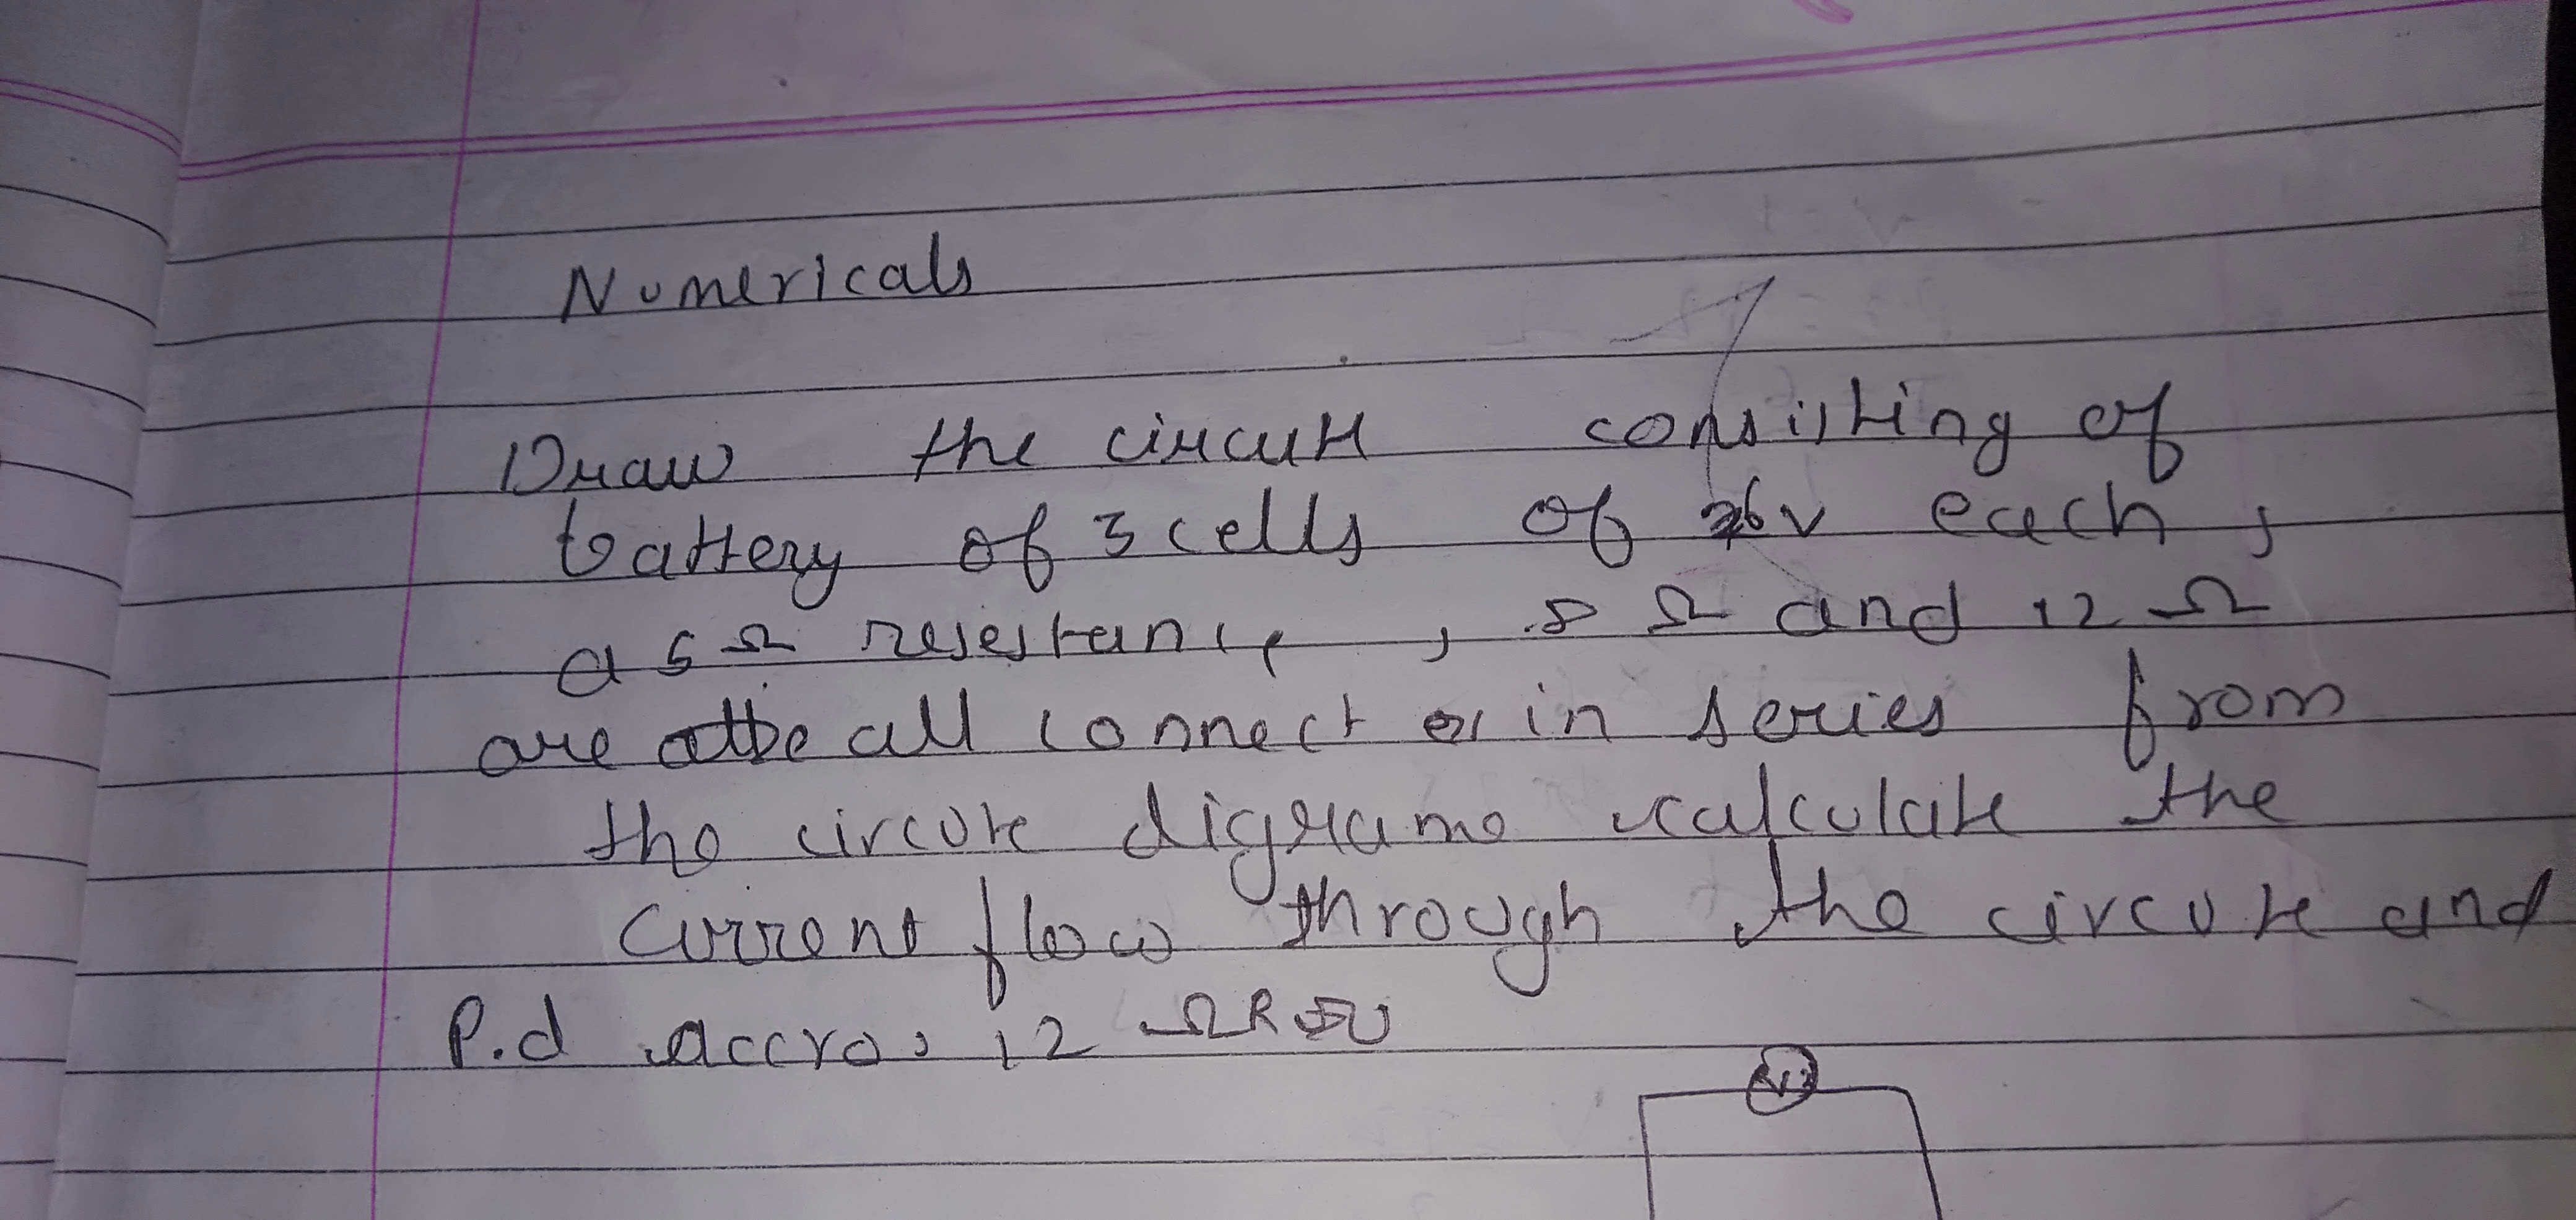 Numericals
Draw the circuit consisting of
battery of 3 cells of 6v each,
a 5 Ω resestance, 8 Ω and 12 Ω
are all connect in series from
the circute digrame calculate the
current flow through the circute and
P.d accros 12 Ω R